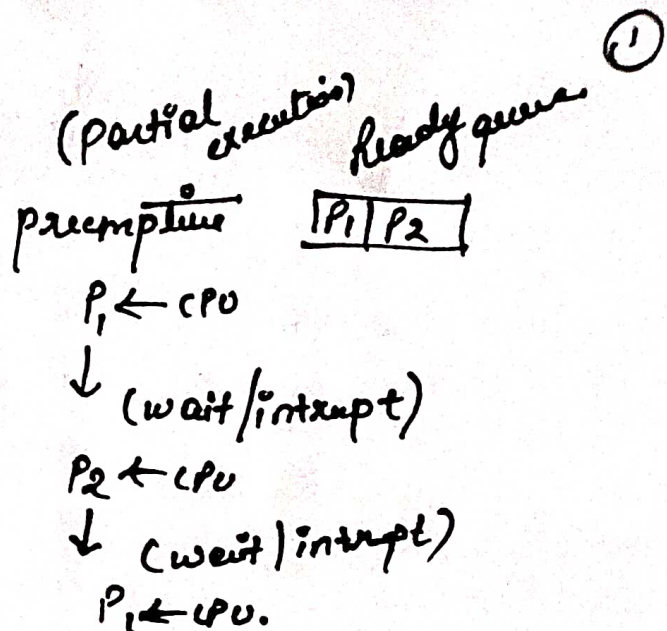 1
(Partial execution) Ready queue
preemptive P1 P2
P1 ← CPU
↓ (wait/intrupt)
P2 ← CPU
↓ (wait/intrupt)
P1 ← CPU.